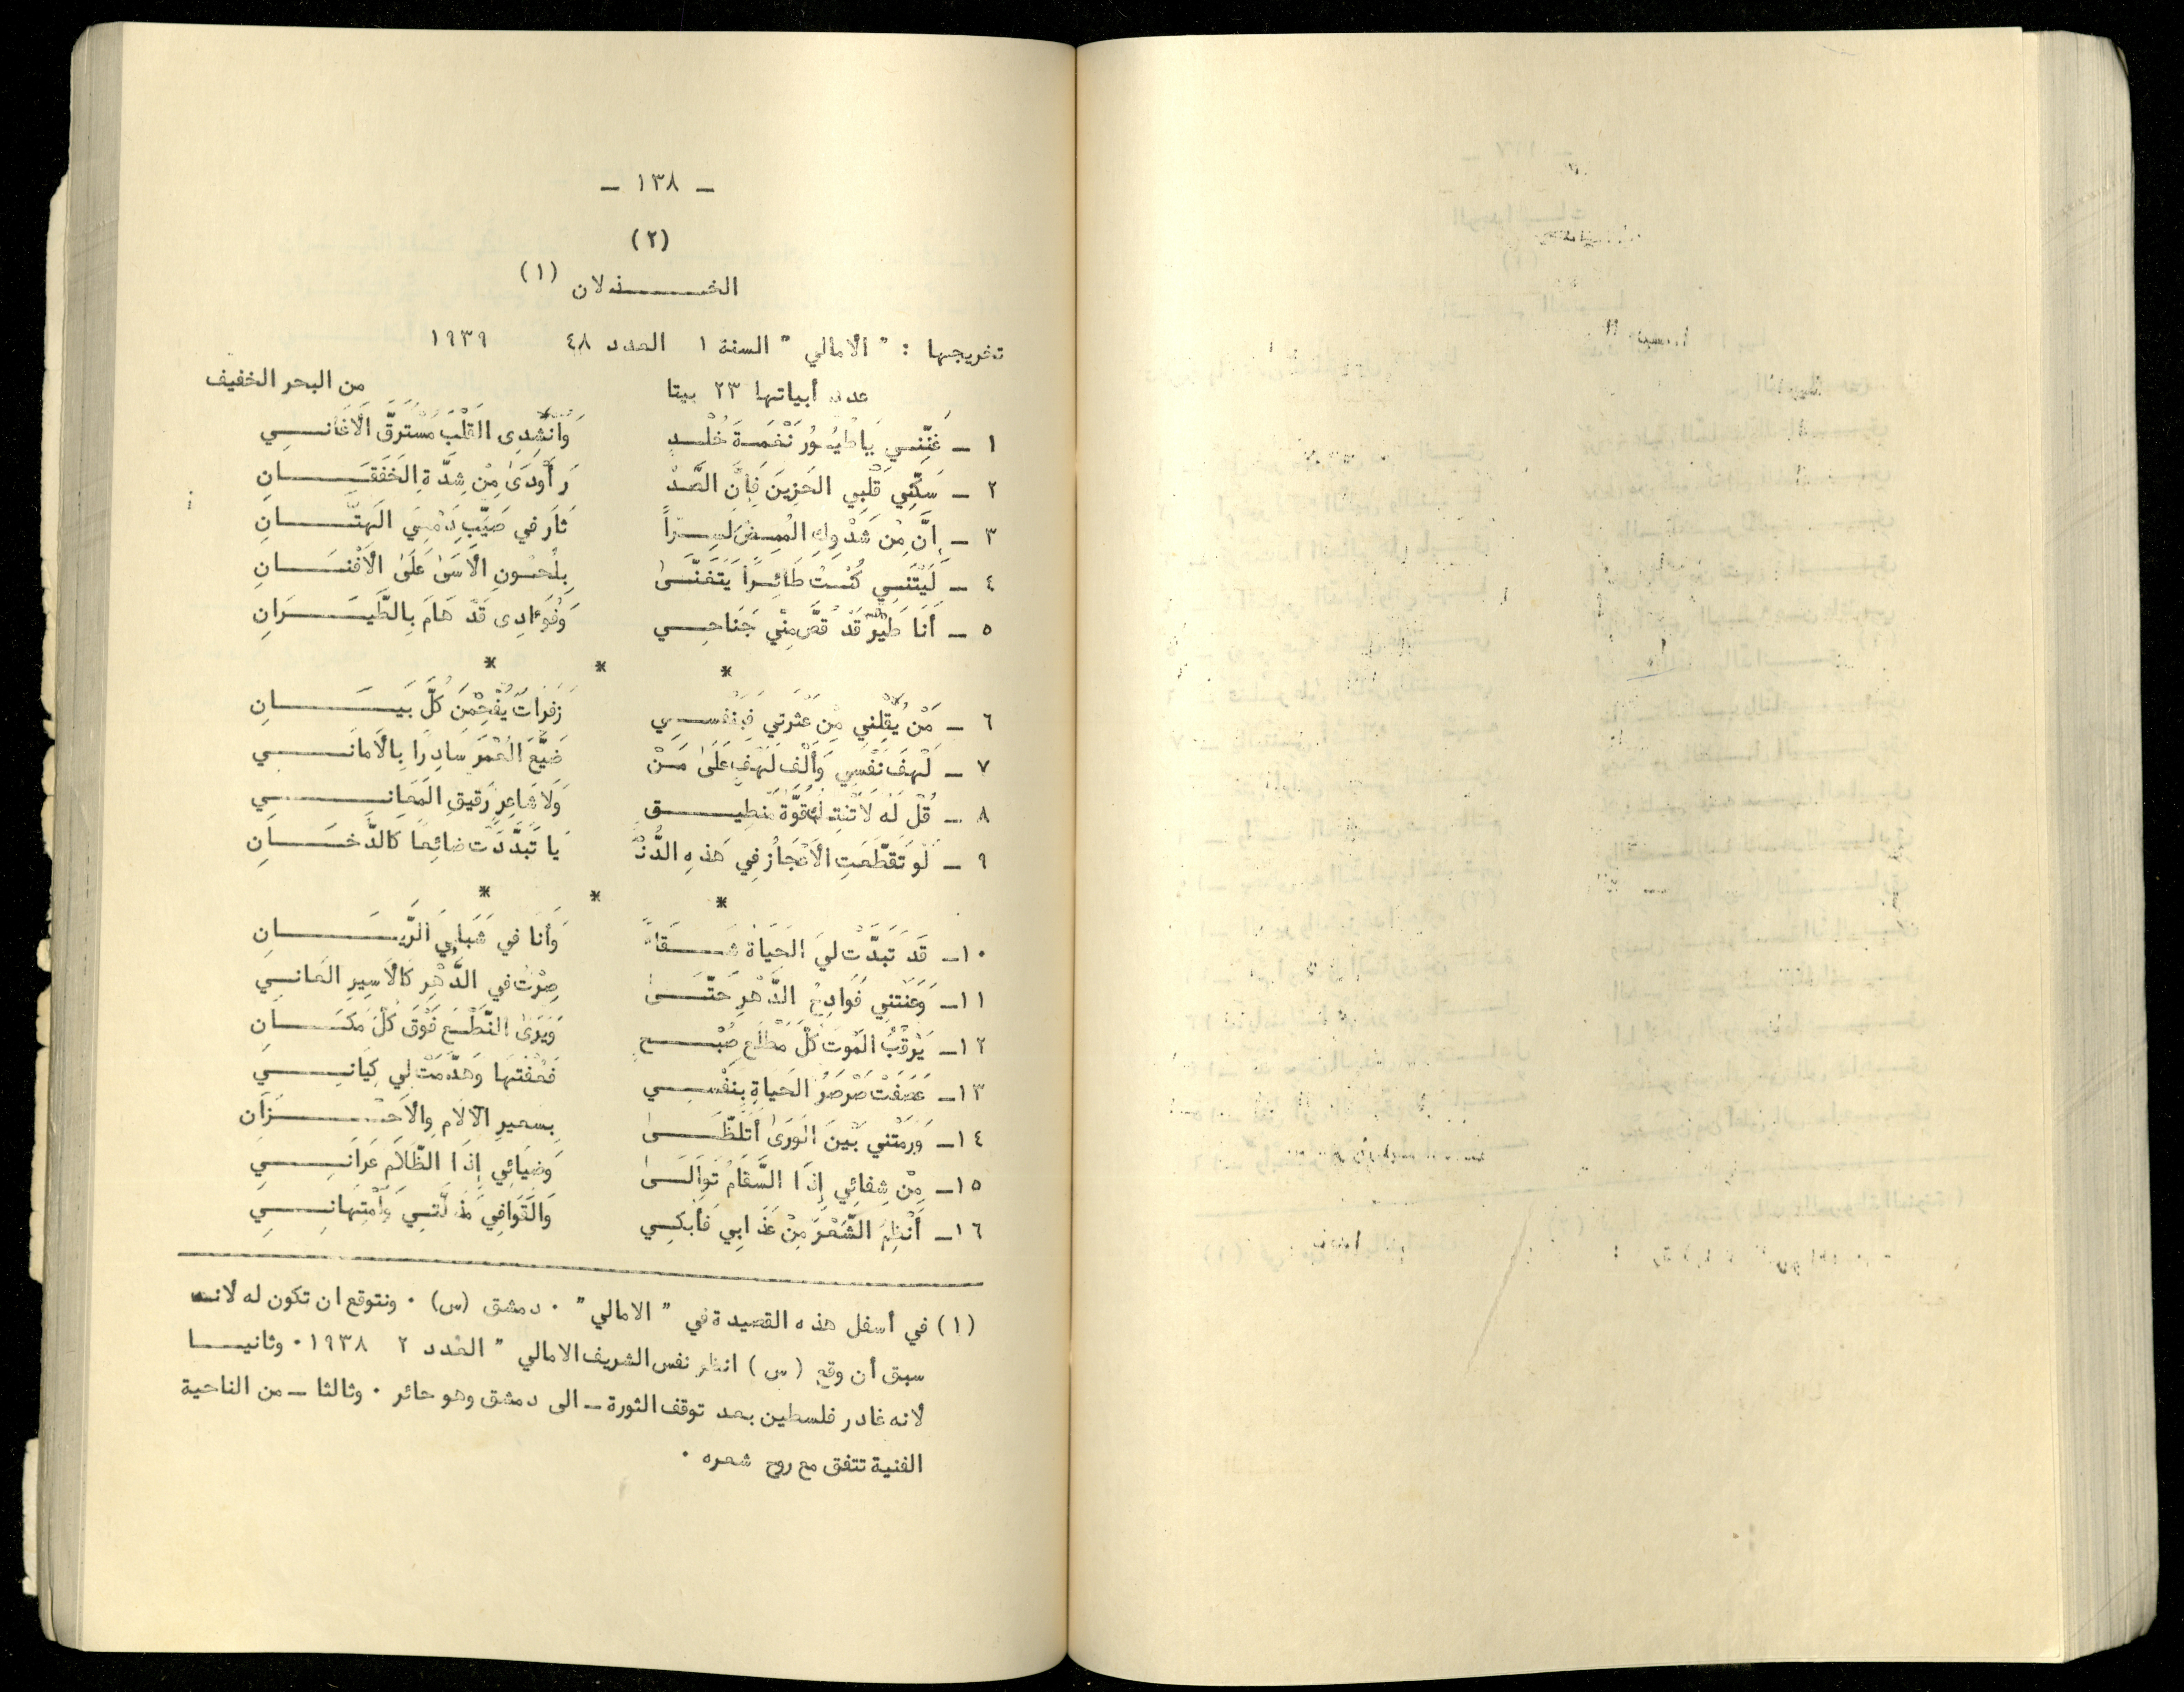 - ١٣٨ -
(٢)
الخذلان (١)
تخريجها : " الأمالي " السنة ١ العدد ٤٨ ١٩٣٩
عدد أبياتها ٢٣ بيتا من البحر الخفيف
١ - غَنِّنِي يَاطُيُورُ نَغْمَةَ خُلْدٍ وَانْشِدِى القَلْبَ مُسْتَرَقَّ الأَغَانِي
٢ - سَكِّنِي قَلْبِي الحَزِينَ فَإِنَّ الصَّدْ رَ أَوْدَىٰ مِنْ شِدَّةِ الخَفَقَانِ
٣ - إِنَّ مِنْ شَدْوِكِ المُمِيضِ لَسِرّاً ثَارَ في صَيِّبِ دَمْعِيَ الهَتَّانِ
٤ - لَيْتَنِي كُنْتُ طَائِراً يَتَغَنَّىٰ بِلُحُونِ الأَسَىٰ عَلَىٰ الأَفْنَانِ
٥ - أَنَا طَيْرٌ قَدْ قُصَّ مِنِّي جَنَاحِي وَفُؤَادِى قَدْ هَامَ بِالطَّيَرَانِ
* * *
٦ - مَنْ يُقِلْنِي مِنْ عَثْرَتي فَبِنَفْسِي زَفَرَاتٌ يُفْحِمْنَ كُلَّ بَيَانِ
٧ - لَهْفَ نَفْسِي وَأَلْفَ لَهْفٍ عَلَىٰ مَنْ ضَيَّعَ العُمْرَ سَادِرًا بِالأَمَانِي
٨ - قُلْ لَهُ لاَ تُفِتْكَ قُوَّةُ مِنْطِيقٍ وَلاَ شَاعِرٍ رَقيقِ المَعَانِي
٩ - لَوْ تَقَطَّعَتِ الأَعْجَازُ فِي هَذِهِ الدُّنْ يَا تَبَدَّدَتْ ضائِعًا كالدُّخَانِ
* * *
١٠- قَدْ تَبَدَّتْ لِيَ الحَيَاةُ شَقَاءً وَأَنَا في شَبَابِيَ الرَّيَّانِ
١١- وَعَنَتْنِي فَوَادِحُ الدَّهْرِ حَتَّىٰ صِرْتُ في الدَّهْرِ كَالأَسِيرِ العَانِي
١٢- يَرْقُبُ المَوْتَ كُلَّ مَطْلَعِ صُبْحٍ وَيَرَىٰ النَّطْعَ فَوْقَ كُلِّ مَكَانِ
١٣- عَصَفَتْ صَرْصَرُ الحَيَاةِ بِنَفْسِي فَحُفْتَهَا وَهَدَّمَتْ لِي كِيَانِي
١٤- وَرَمَتْنِي بَيْنَ الوَرَىٰ أَتَلَظَّىٰ بِسَعيرِ الآلامِ وِالأَحْزَانِ
١٥- مِنْ شِفَائِي إِذَا السَّقَامُ تَوَالَىٰ وَضِيَائِي إِذَا الظَّلاَمُ عَرَانِي
١٦- أَنْظِمُ الشِّعْرَ مِنْ عَذَابِي فَأَبْكِي وَالقَوَافِي مَذَلَّتِي وَامْتِهَانِي
(١) في أسفل هذه القصيدة في " الامالي " . دمشق (س) . ونتوقع ان تكون له لأنه
سبق أن وقع ( س ) انظر نفس الشريف الامالي " العدد ٢ ١٩٣٨ . وثانيا
لأنه غادر فلسطين بعد توقف الثورة - الى دمشق وهو حائر . وثالثا - من الناحية
الفنية تتفق مع روح شعره .